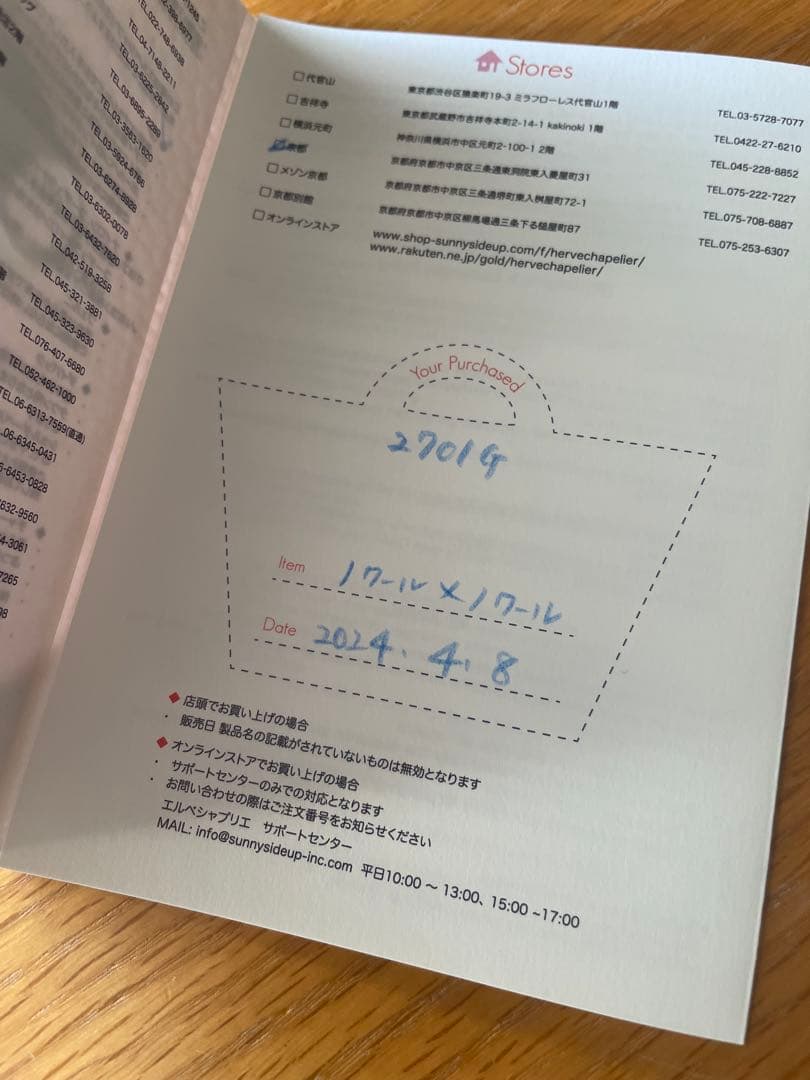 TEL.022-748-6938
TEL.04-7148-2211
TEL.03-6225-2842
TEL.03-6895-2289
TEL.03-3583-1820
TEL.03-5924-6766
TEL.03-6274-8928
TEL.03-6302-0078
TEL.03-6432-7620
TEL.042-519-3258
TEL.045-321-3881
TEL.045-323-9630
TEL.076-407-6680
TEL.052-462-1000
TEL.06-6313-7559(直通)
.06-6345-0431
6-6453-0828
632-9560
4-3061
7265
98
Stores
代官山 東京都渋谷区猿楽町19-3 ミラフローレス代官山1階 TEL.03-5728-7077
吉祥寺 東京都武蔵野市吉祥寺本町2-14-1 kakinoki 1階 TEL.0422-27-6210
横浜元町 神奈川県横浜市中区元町2-100-1 2階 TEL.045-228-8852
京都 京都府京都市中京区三条通東洞院東入菱屋町31 TEL.075-222-7227
メゾン京都 京都府京都市中京区三条通堺町東入桝屋町72-1 TEL.075-708-6887
京都別館 京都府京都市中京区柳馬場通三条下る槌屋町87 TEL.075-253-6307
オンラインストア www.shop-sunnysideup.com/f/hervechapelier/
www.rakuten.ne.jp/gold/hervechapelier/
Your Purchased
2701G
Item ノワール×ノワール
Date 2024.4.8
◆ 店頭でお買い上げの場合
・ 販売日 製品名の記載がされていないものは無効となります
◆ オンラインストアでお買い上げの場合
・ サポートセンターのみでの対応となります
・ お問い合わせの際はご注文番号をお知らせください
エルベシャプリエ サポートセンター
MAIL: info@sunnysideup-inc.com 平日10:00 ～ 13:00、15:00 ~17:00